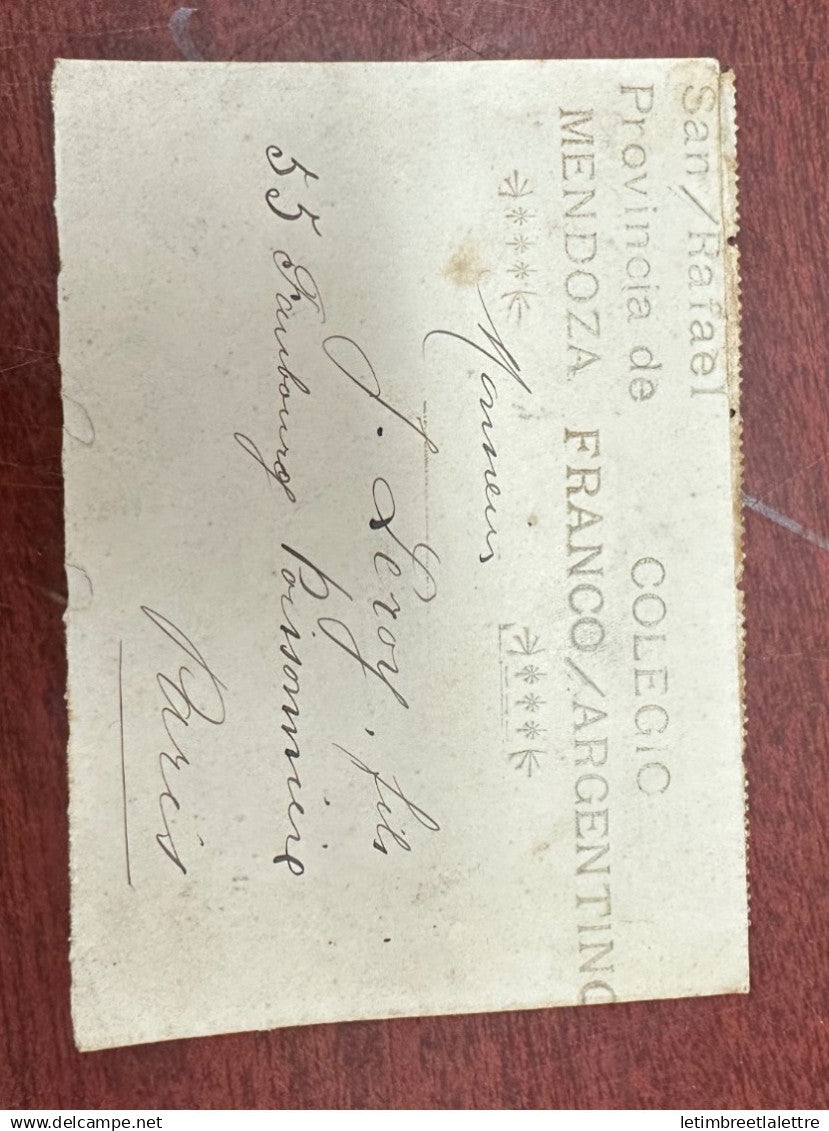 San/Rafael
Provincia de COLEGIO
MENDOZA FRANCO/ARGENTINO
Monsieur
J. Leroy, fils.
55 Faubourg Poissonnière
Paris
letimbreetlalettre